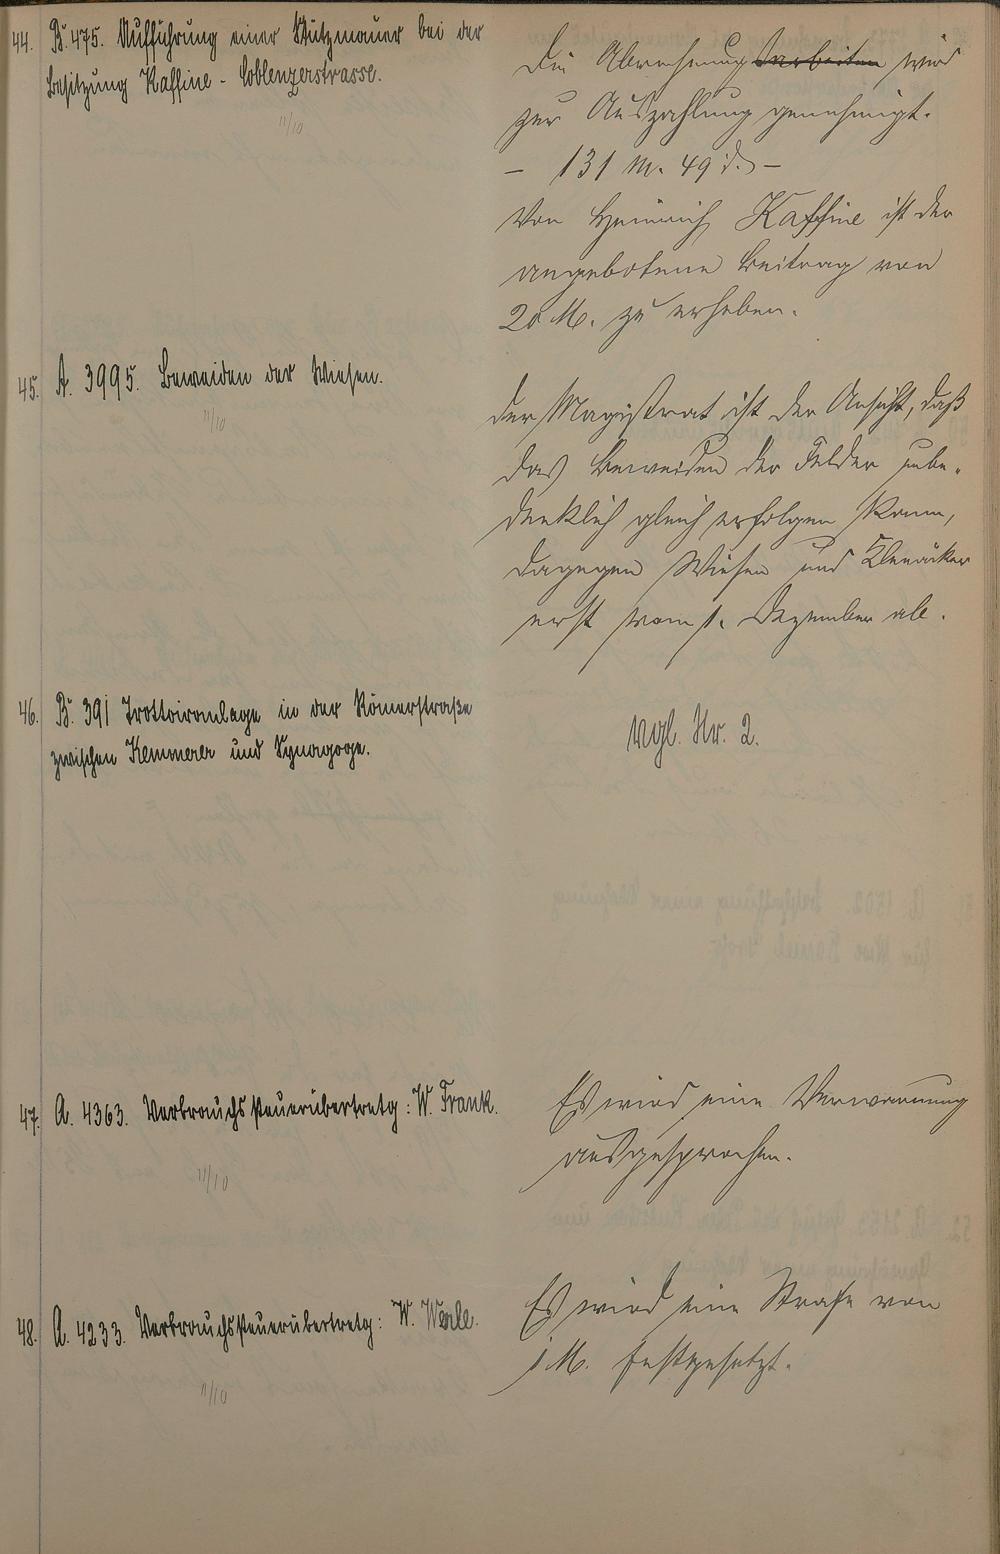 44. B. 475. Aufführung einer Stützmauer bei der
Besitzung Kaffine - Coblenzerstrasse.
11/10
Die Abrechnung wird
zur Auszahlung genehmigt.
- 131 M. 49 d. -
Von Heinrich Kaffine ist der
angebotene Beitrag von
20 M. zu erheben.
45. A. 3995. Beweiden der Wiesen.
11/10
Der Magistrat ist der Ansicht, daß
das Beweiden der Felder unbe-
denklich gleich erfolgen kann,
dagegen Wiesen und Kleeäcker
erst vom 1. Dezember ab.
46. B. 391 Trottoiranlage in der Römerstraße
zwischen Kemmerer und Synagoge.
Vgl. Nr. 2.
47. A. 4363. Verbrauchssteuerübertretg: W. Frank.
11/10
Es wird eine Verwarnung
ausgesprochen.
48. A. 4233. Verbrauchssteuerübertretg: W. Werle.
11/10
Es wird eine Strafe von
1 M. festgesetzt.